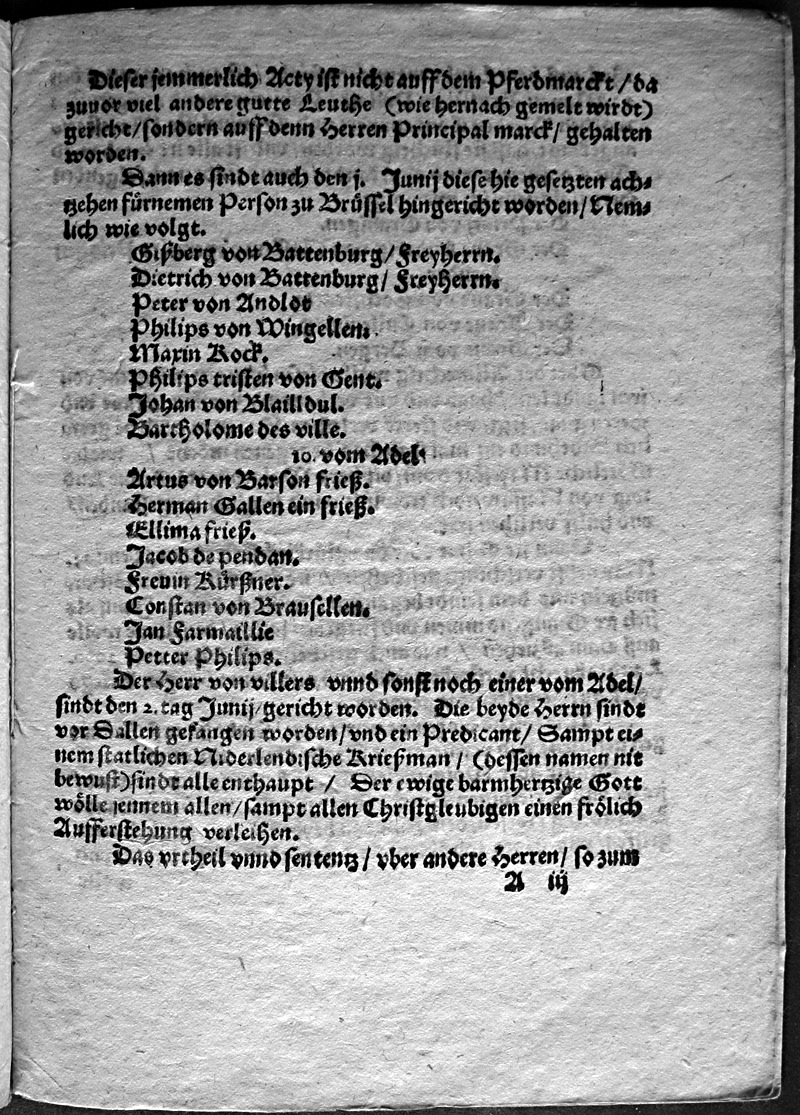 Dieser jemmerlich Acty ist nicht auff dem Pferdmarckt / da
zuuor viel andere gutte Leuthe (wie hernach gemelt wirdt)
gericht / sondern auff denn Herren Principal marck / gehalten
worden.
Dann es sindt auch den j. Junij diese hie gesetzten ach⸗
tzehen fürnemen Person zu Brüssel hingericht worden / Nem⸗
lich wie volgt.
Gißberg von Battenburg / Freyherrn.
Dietrich von Battenburg / Freyherrn.
Peter von Andlot
Philips von Wingellem.
Maxin Kock.
Philips tristen von Gent.
Johan von Blailldul.
Bartholome des ville.
10. vom Adel
Artus von Barson frieß.
Herman Gallen ein frieß.
Ellima frieß.
Jacob de pendan.
Freuin Kürßner.
Constan von Brausellen.
Jan Farmaillie
Petter Philips.
Der Herr von villers vnnd sonst noch einer vom Adel /
sindt den 2. tag Junij / gericht worden. Die beyde Herrn sindt
vor Dallen gefangen worden / vnd ein Predicant / Sampt ei⸗
nem statlichen Niderlendische Krießman / (dessen namen nit
bewust) sindt alle enthaupt / Der ewige barmhertzige Gott
wölle jennem allen / sampt allen Christgleubigen einen frölich
Aufferstehung verleihen.
Das vrtheil vnnd sententz / vber andere Herren / so zum
A iij